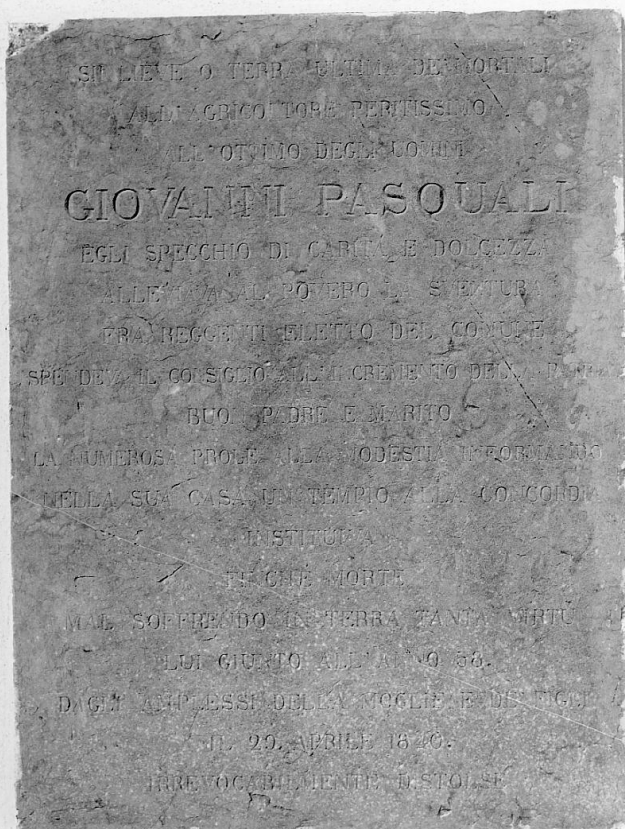 SII LIEVE O TERRA ULTIMA DE' MORTALI
ALL'AGRICOLTORE PERITISSIMO
ALL'OTTIMO DEGLI UOMINI
GIOVANNI PASQUALI
EGLI SPECCHIO DI CARITÀ E DOLCEZZA
ALLEVIAVA AL POVERO LA SVENTURA
FRA REGGENTI ELETTO DEL COMUNE
SPENDEVA IL CONSIGLIO ALL'INCREMENTO DELLA
BUON PADRE E MARITO
LA NUMEROSA PROLE ALLA MODESTIA INFORMANDO
NELLA SUA CASA UN TEMPIO ALLA CONCORDIA
INSTITUIVA
FINCHÈ MORTE
MAL SOFFRENDO IN TERRA TANTA VIRTÙ
LUI GIUNTO ALL'ANNO 58.
DAGLI AMPLESSI DELLA MOGLIE E DE' FIGLI
IL 29. APRILE 1840.
IRREVOCABILMENTE DISTOLSE